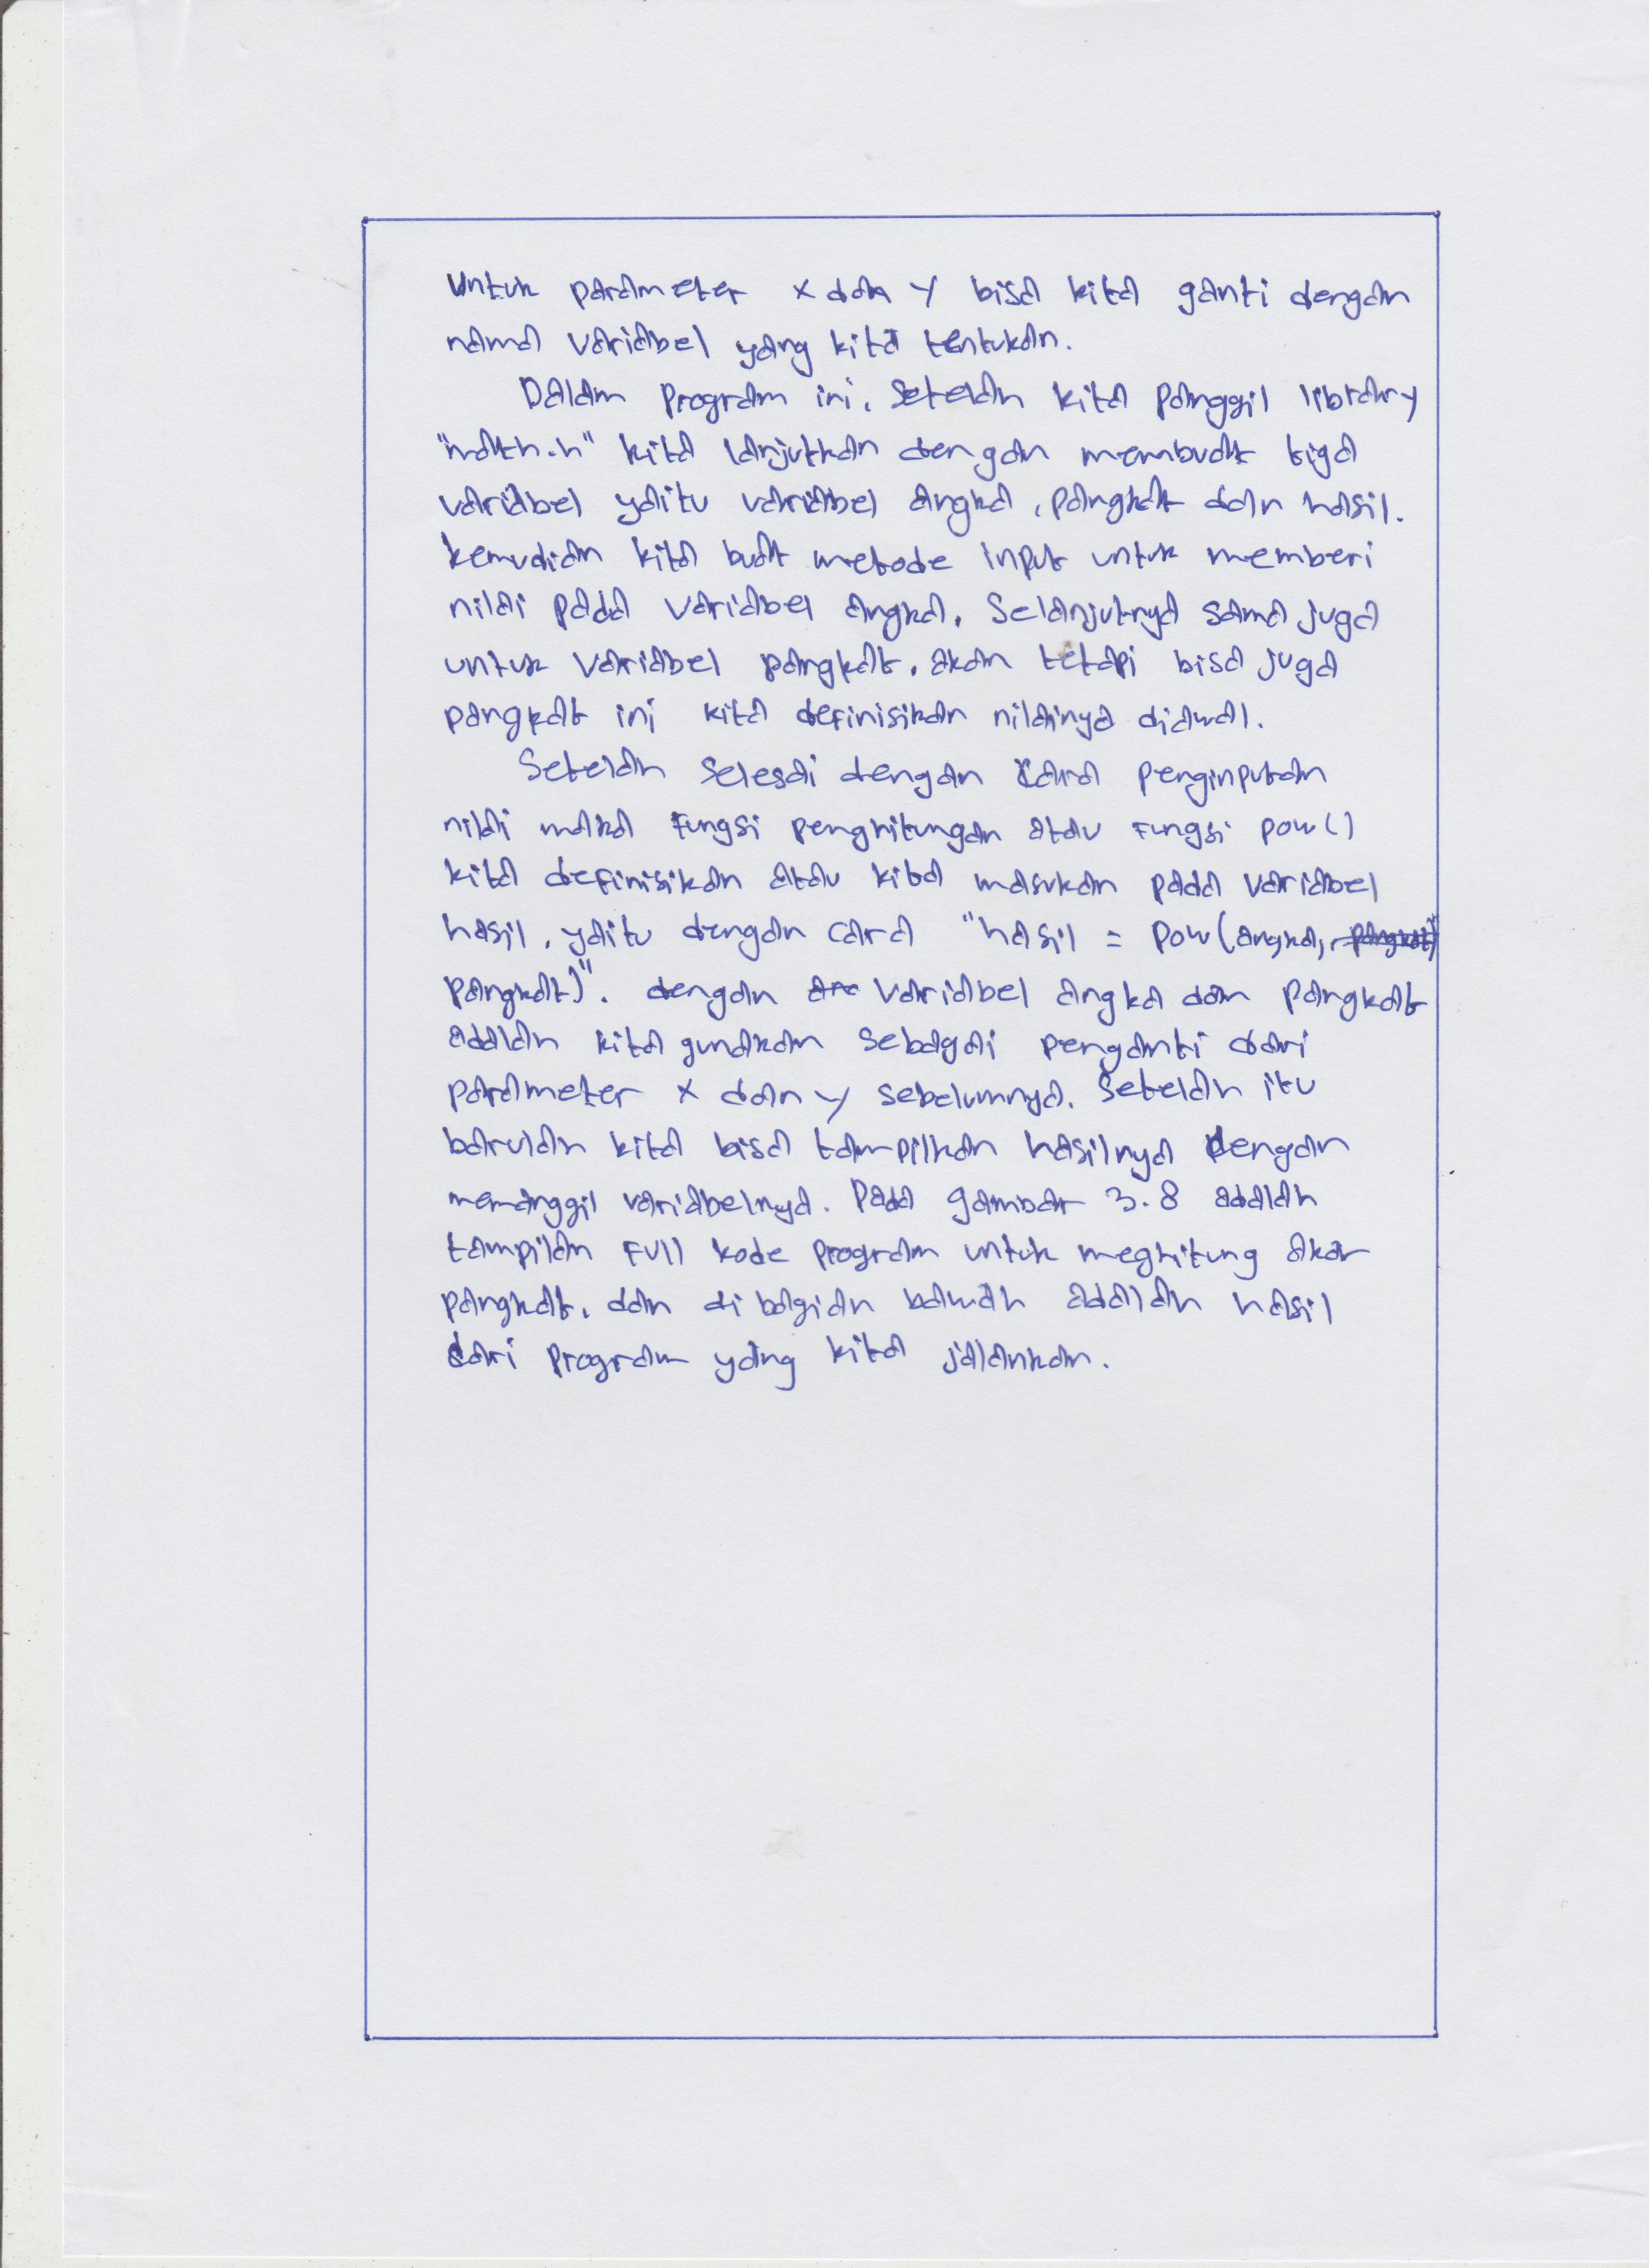 Untuk parameter x dan y bisa kita ganti dengan
nama variabel yang kita tentukan.
Dalam program ini, setelah kita panggil library
"math.h" kita lanjutkan dengan membuat tiga
variabel yaitu variabel angka, pangkat dan hasil.
kemudian kita buat metode input untuk memberi
nilai pada variabel angka. Selanjutnya sama juga
untuk variabel pangkat. akan tetapi bisa juga
pangkat ini kita definisikan nilainya diawal.
Setelah selesai dengan cara penginputan
nilai maka fungsi penghitungan atau fungsi pow()
kita definisikan atau kita masukan pada variabel
hasil, yaitu dengan cara "hasil = pow(angka, pangkat)"
pangkat)". dengan variabel angka dan pangkat
adalah kita gunakan sebagai penganti dari
parameter x dan y sebelumnya. Setelah itu
barulah kita bisa tampilkan hasilnya dengan
memanggil variabelnya. Pada gambar 3.8 adalah
tampilan full kode program untuk meghitung akar
pangkat. dan di bagian bawah adalah hasil
dari program yang kita jalankan.